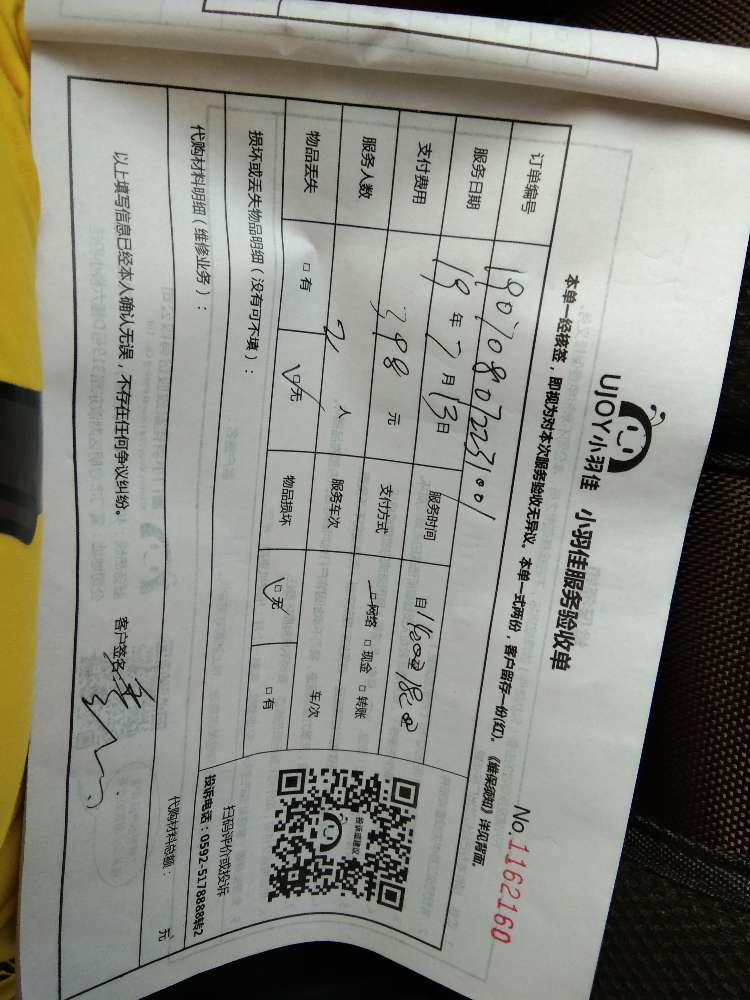 UJOY小羽佳 小羽佳服务验收单
No.1162160
本单一经核签，即视为对本次服务验收无异议。本单一式两份，客户留存一份(红)。《维保须知》详见背面。
订单编号 1907080722231001
服务日期 19年7月13日 服务时间 自14:00至18:00
支付费用 398元 支付方式 □网络 □现金 □转账
服务人数 2人 服务车次 车/次
物品丢失 □有 □无 物品损坏 □无 □有
损坏或丢失物品明细（没有可不填）：
投诉或建议
扫码评价或投诉
投诉电话：0592-5178888转2
代购材料明细（维修业务）：
代购材料总额： 元
以上填写信息已经本人确认无误，不存在任何争议纠纷。 客户签名: